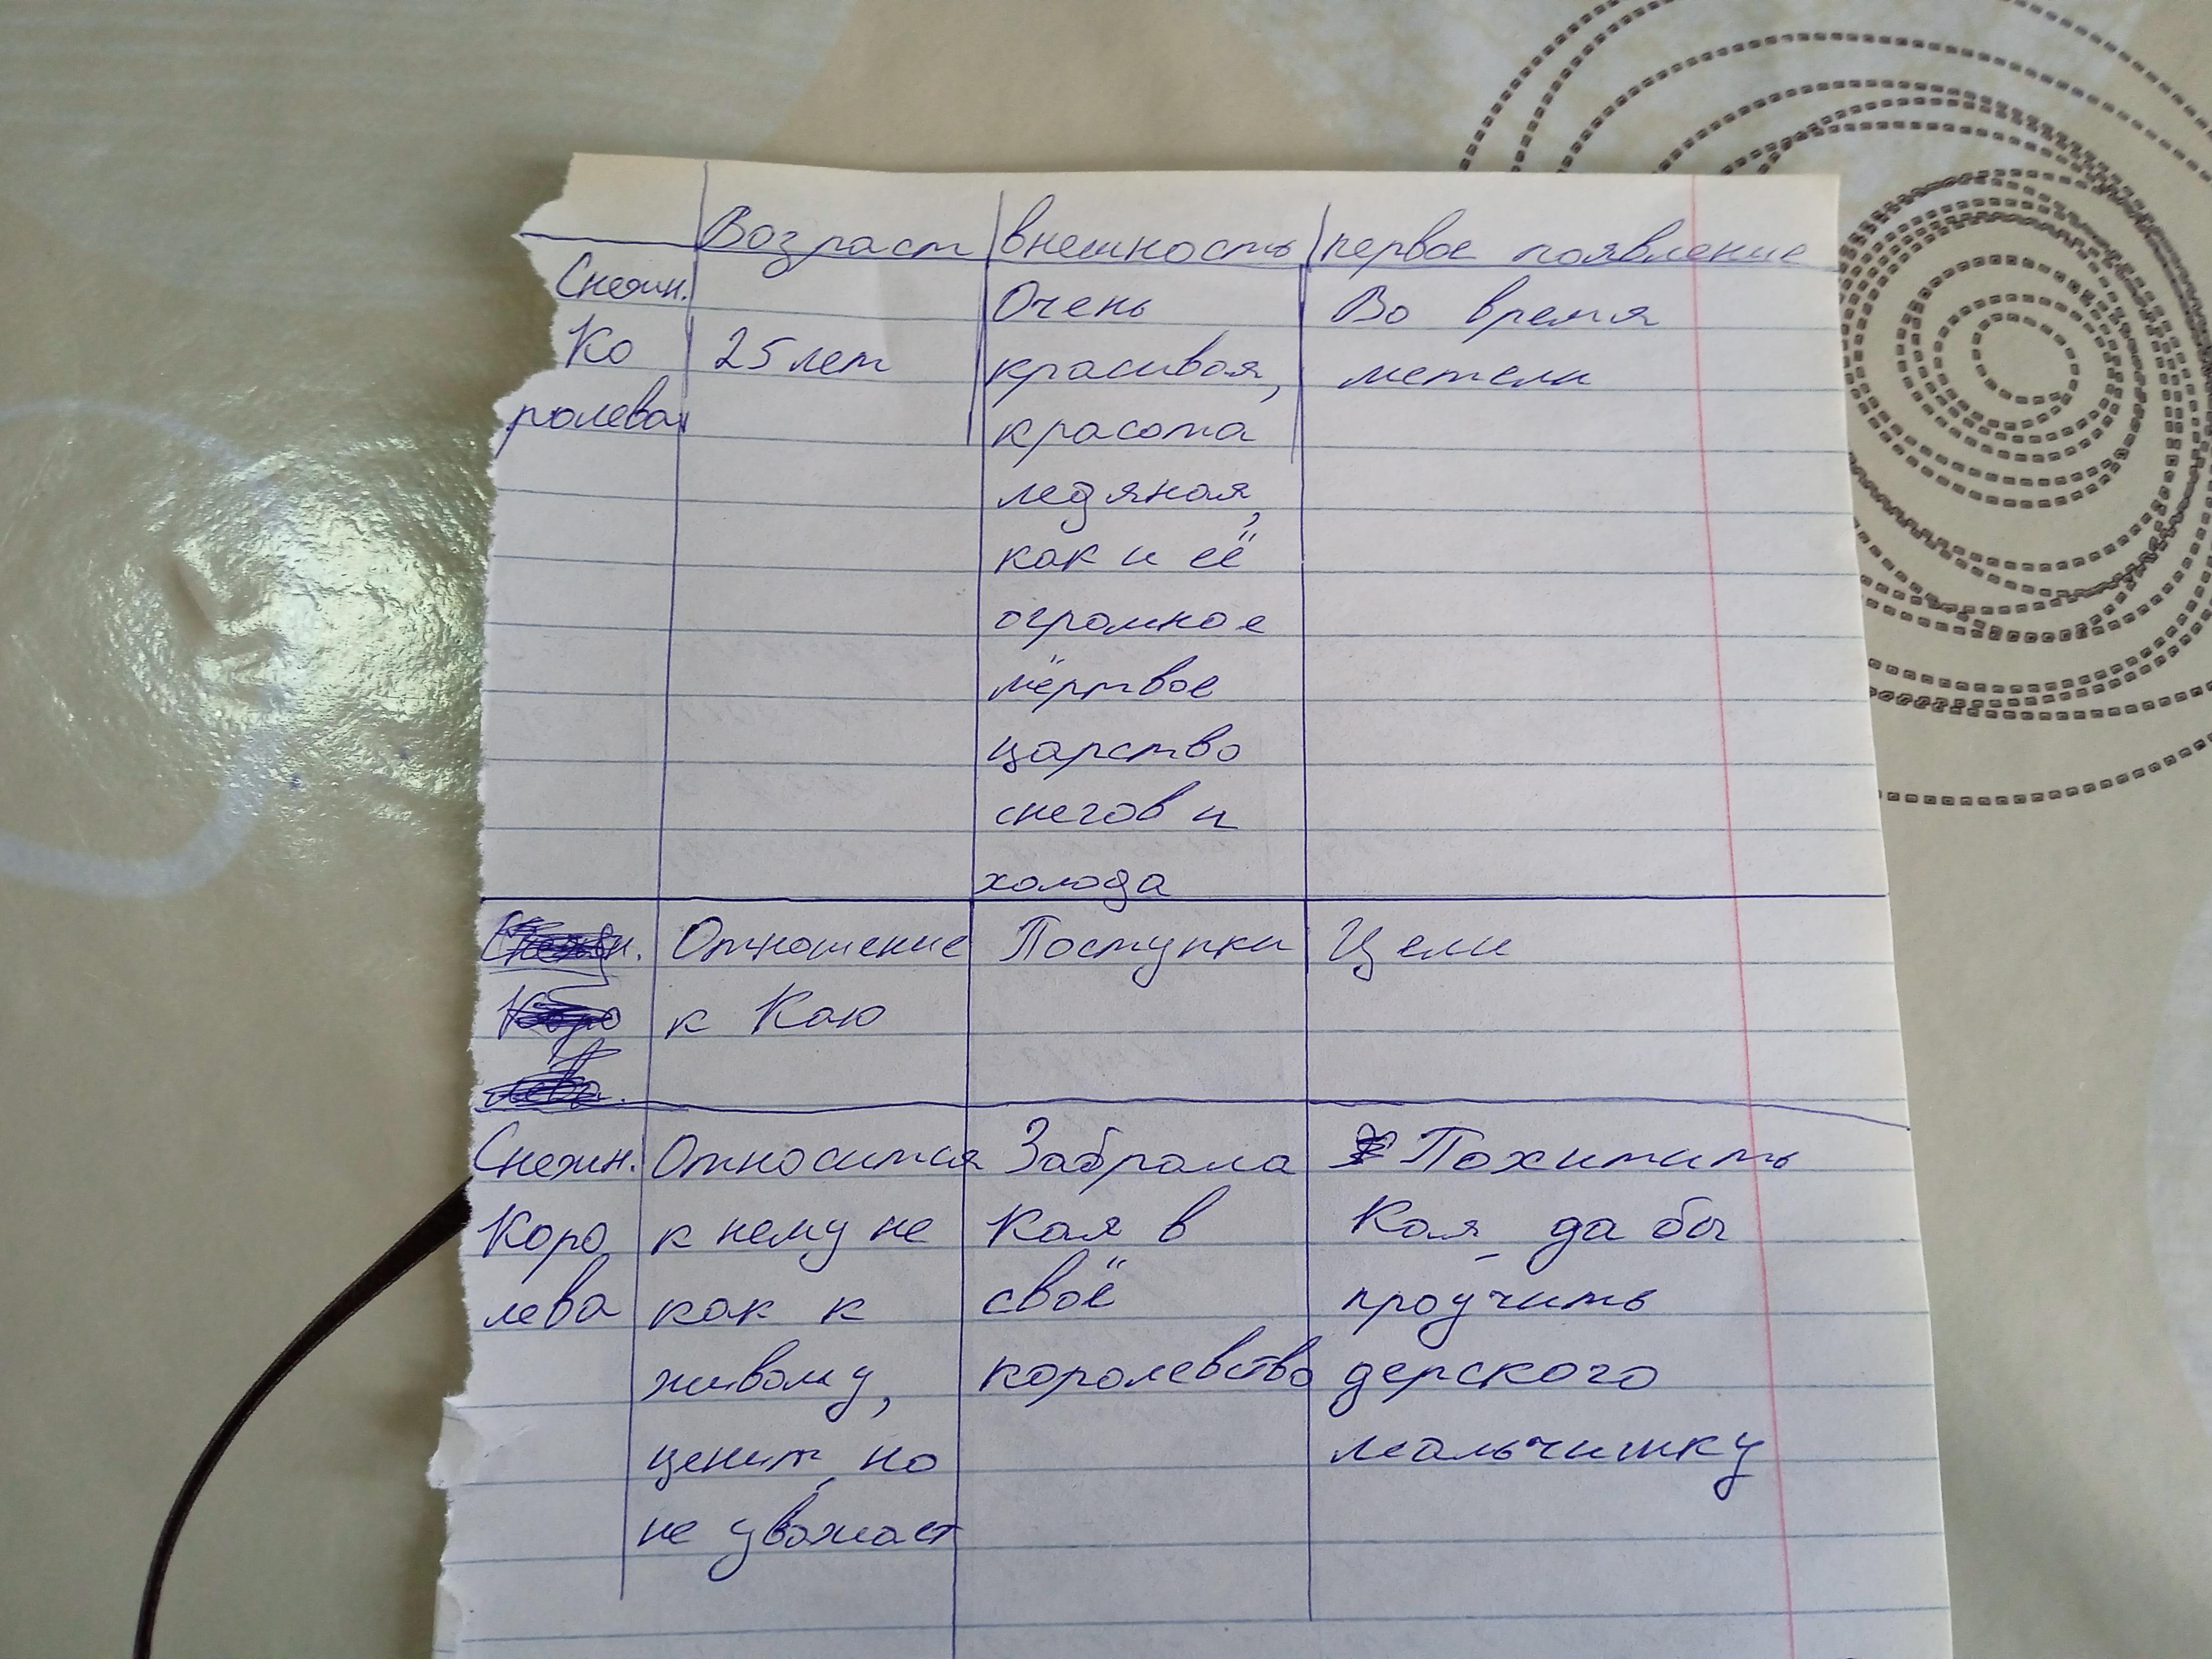 Возраст внешность первое появление
Снежн. Очень Во время
Ко 25 лет красивая, метели
ролева красота
ледяная,
как и её
огромное
мёртвое
царство
снегов и
холода
Снежн. Отношение Поступки Цели
Коро к Каю
лева.
Снежн. Относится Забрала Похитить
Коро к нему не Кая в Кая, да бы
лева как к своё проучить
живому, королевство дерского
ценит, но мальчишку
не уважает